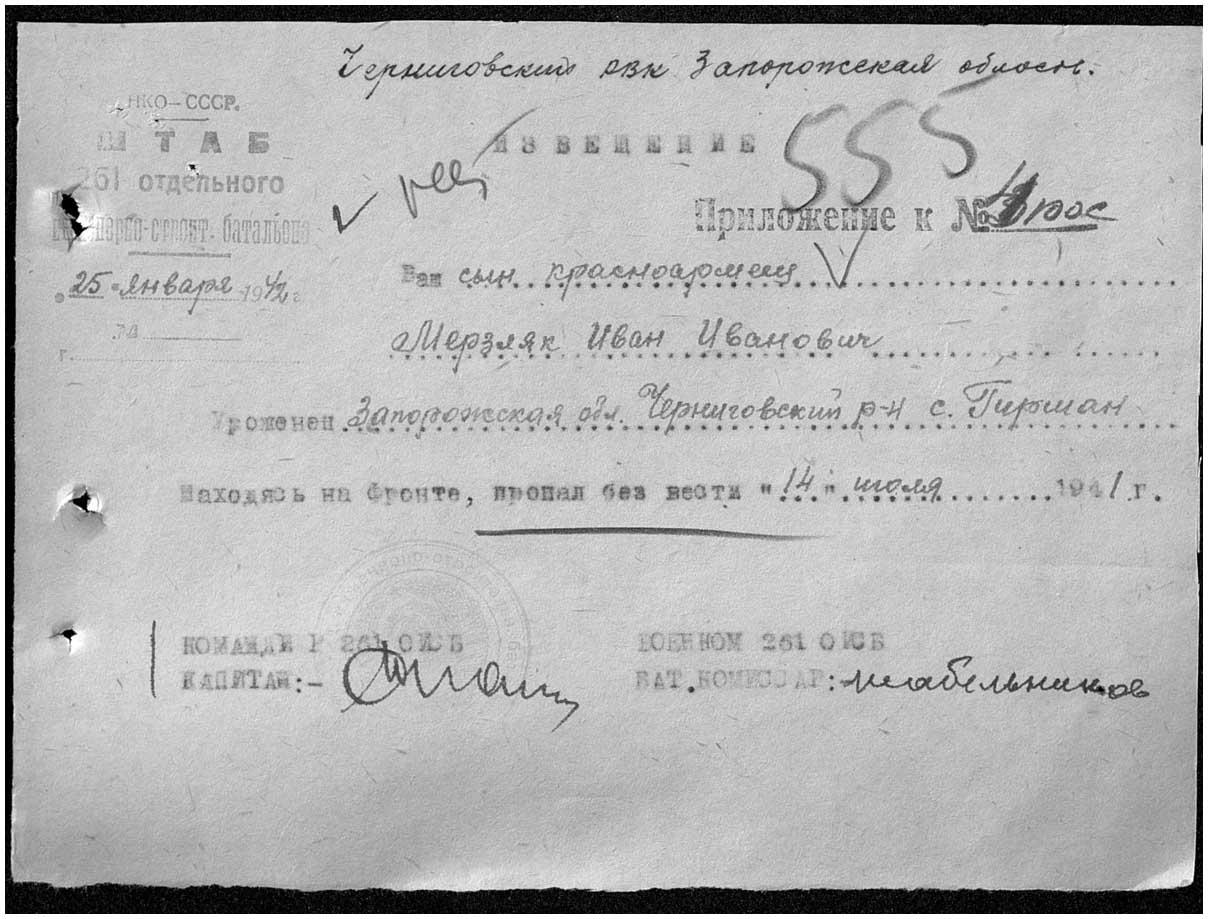 Черниговский РВК Запорожская область.
НКО-СССР.
ШТАБ
261 отдельного
инженерно-строит. батальона
"25" января 1942 г.
№
г.
ИЗВЕЩЕНИЕ
555
Приложение к №
Ваш сын красноармеец
Мерзляк Иван Иванович
Уроженец Запорожская обл. Черниговский р-н с. Гирман
Находясь на фронте, пропал без вести "14" июля 1941 г.
КОМАНДИР 261 ОИСБ
КАПИТАН:-
ВОЕНКОМ 261 ОИСБ
БАТ.КОМИССАР:-